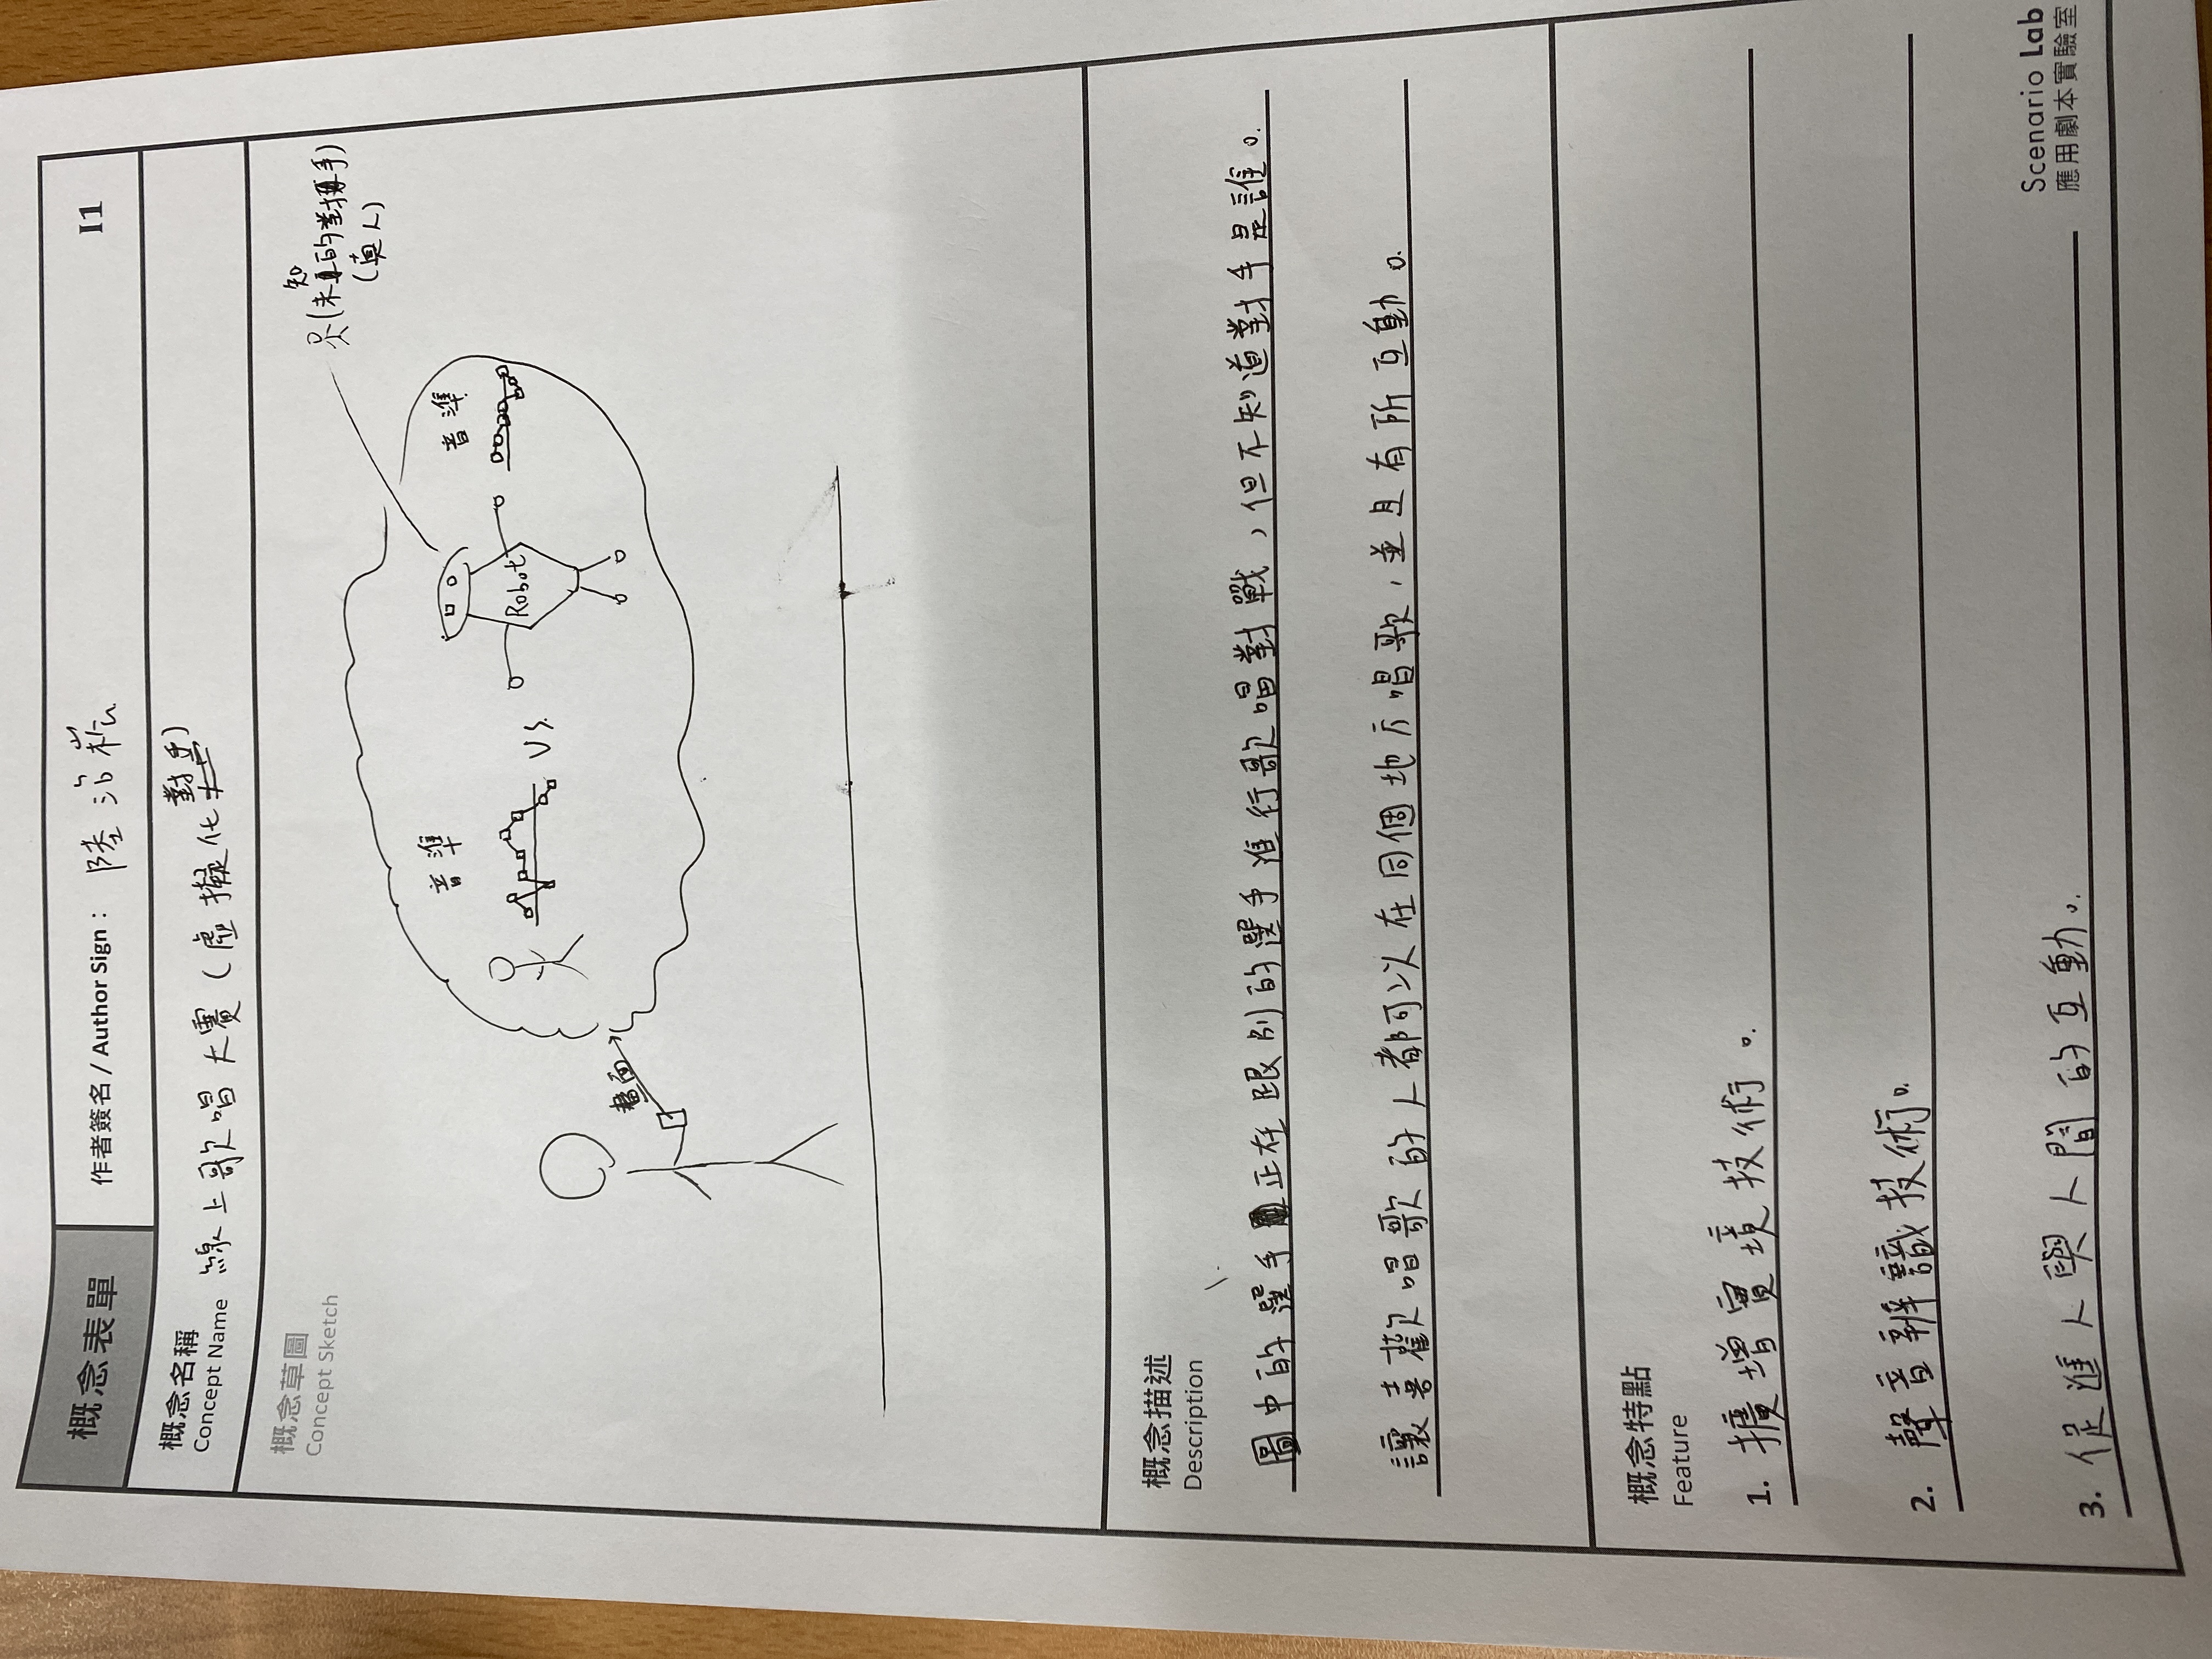 概念表單
作者簽名 / Author Sign： 陸治崧
I1
概念名稱
Concept Name
線上歌唱大賽(虛擬化對手)
概念草圖
Concept Sketch
(未知的對手)
(真人)
音準
音準
VS.
Robot
畫面
概念描述
Description
圖中的選手正在跟別的選手進行歌唱對戰，但不知道對手是誰。
讓喜歡唱歌的人都可以在同個地方唱歌，並且有所互動。
概念特點
Feature
1. 擴增實境技術。
2. 聲音辨識技術。
3. 促進人與人間的互動。
Scenario Lab
應用劇本實驗室